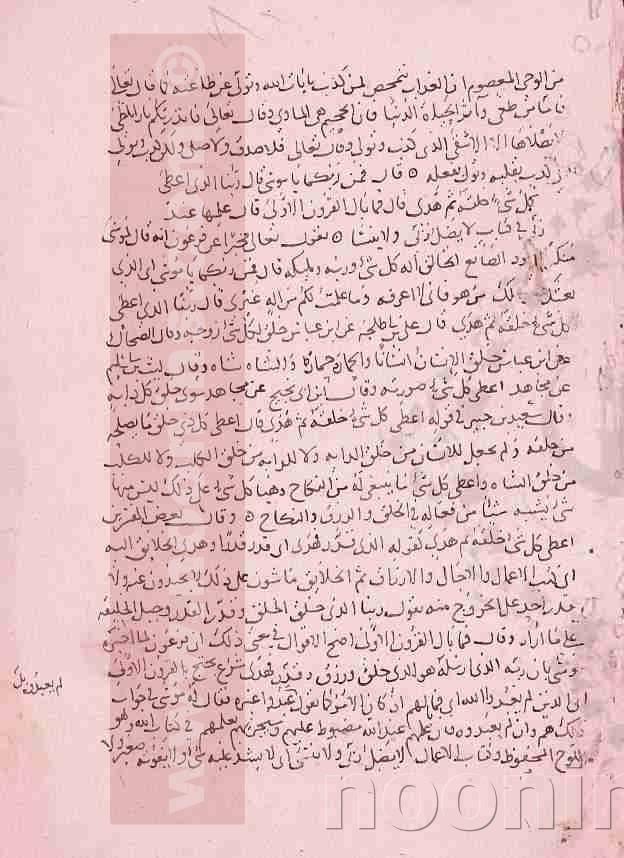 من الوحي المعصوم ان العذاب متمحص لمن كذب بايات الله وتولى عن طاعته كما قال تعالى
فاما من طغى وآثر الحياة الدنيا فان الجحيم هي الماوى وقال تعالى فانذرتكم نارا تلظى
لا يصلاها الا الاشقى الذي كذب وتولى وقال تعالى فلا صدق ولا صلى ولكن كذب وتولى
اي كذب بقلبه وتولى بفعله ه قال فمن ربكما يا موسى قال ربنا الذي اعطى
كل شيء خلقه ثم هدى قال فما بال القرون الاولى قال علمها عند
ربي في كتاب لا يضل ربي ولا ينسى ه يقول تعالى مخبرا عن فرعون انه قال لموسى
منكرا وجود الصانع الخالق اله كل شيء وربه ومليكه قال فمن ربكما يا موسى اي الذي
بعثك وارسلك من هو فاني لا اعرفه وما علمت لكم من اله غيري قال ربنا الذي اعطى
كل شيء خلقه ثم هدى قال علي بن ابي طلحه عن ابن عباس خلق لكل شيء زوجه وقال الضحاك
عن ابن عباس جعل الانسان انسانا والحمار حمارا والشاه شاه وقال ليث بن ابي سليم
عن مجاهد اعطى كل شيء صورته وقال ابن ابي نجيح عن مجاهد سوى خلق كل دابه
وقال سعيد بن جبير في قوله اعطى كل شيء خلقه ثم هدى قال اعطى كل ذي خلق ما يصلحه
من خلقه ولم يجعل للانسان من خلق الدابه ولا للدابه من خلق الكلب ولا للكلب
من خلق الشاه واعطى كل شيء ما ينبغي له من النكاح وهيا كل شيء على ذلك ليس منها
شي يشبه شيئا من فعاله في الخلق والرزق والنكاح ه وقال بعض المفسرين
اعطى كل شيء خلقه ثم هدى كقوله الذي قدر فهدى اي قدر قدرا وهدى الخلايق اليه
اي كتب الاعمال والاجال والارزاق ثم الخلايق ماشون على ذلك لا يحيدون عنه ولا
يقدر احد على الخروج منه يقول ربنا الذي خلق الخلق وقدر القدر وجبل الخليقه
على ما اراد وقال فما بال القرون الاولى اصح الاقوال في معنى ذلك ان فرعون لما اخبره
موسى بان ربه الذي ارسله هو الذي خلق ورزق وقدر فهدى شرع يحتج بالقرون الاولى
اي الذين لم يعبدوا الله اي فما بالهم ان كان الامر كما تقول لم يعبدوا ربك
غيره فقال له موسى في جواب
ذلك هم وان لم يعبدوه فان علمهم عند الله مضبوط عليهم وسيجزيهم بعملهم في كتاب الله وهو
اللوح المحفوظ وكتاب الاعمال لا يضل ربي ولا ينسى اي لا يشذ عنه شي ولا يفوته صغير ولا